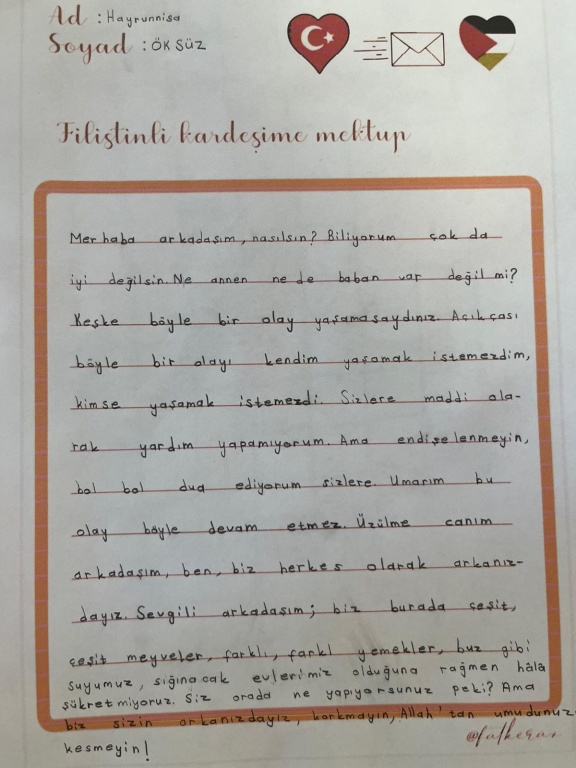 Ad : Hayrunnisa
Soyad : ÖKSÜZ
Filistinli kardeşime mektup
Merhaba arkadaşım, nasılsın? Biliyorum çok da
iyi değilsin. Ne annen ne de baban var değil mi?
Keşke böyle bir olay yaşamasaydınız. Açıkçası
böyle bir olayı kendim yaşamak istemezdim,
kimse yaşamak istemezdi. Sizlere maddi ola-
rak yardım yapamıyorum. Ama endişelenmeyin,
bol bol dua ediyorum sizlere. Umarım bu
olay böyle devam etmez. Üzülme canım
arkadaşım, ben, biz herkes olarak arkanız-
dayız. Sevgili arkadaşım; biz burada çeşit,
çeşit meyveler, farklı, farklı yemekler, buz gibi
suyumuz, sığınacak evlerimiz olduğuna rağmen hâlâ
şükretmiyoruz. Siz orada ne yapıyorsunuz peki? Ama
biz sizin arkanızdayız, korkmayın, Allah'tan umudunuzu
kesmeyin!